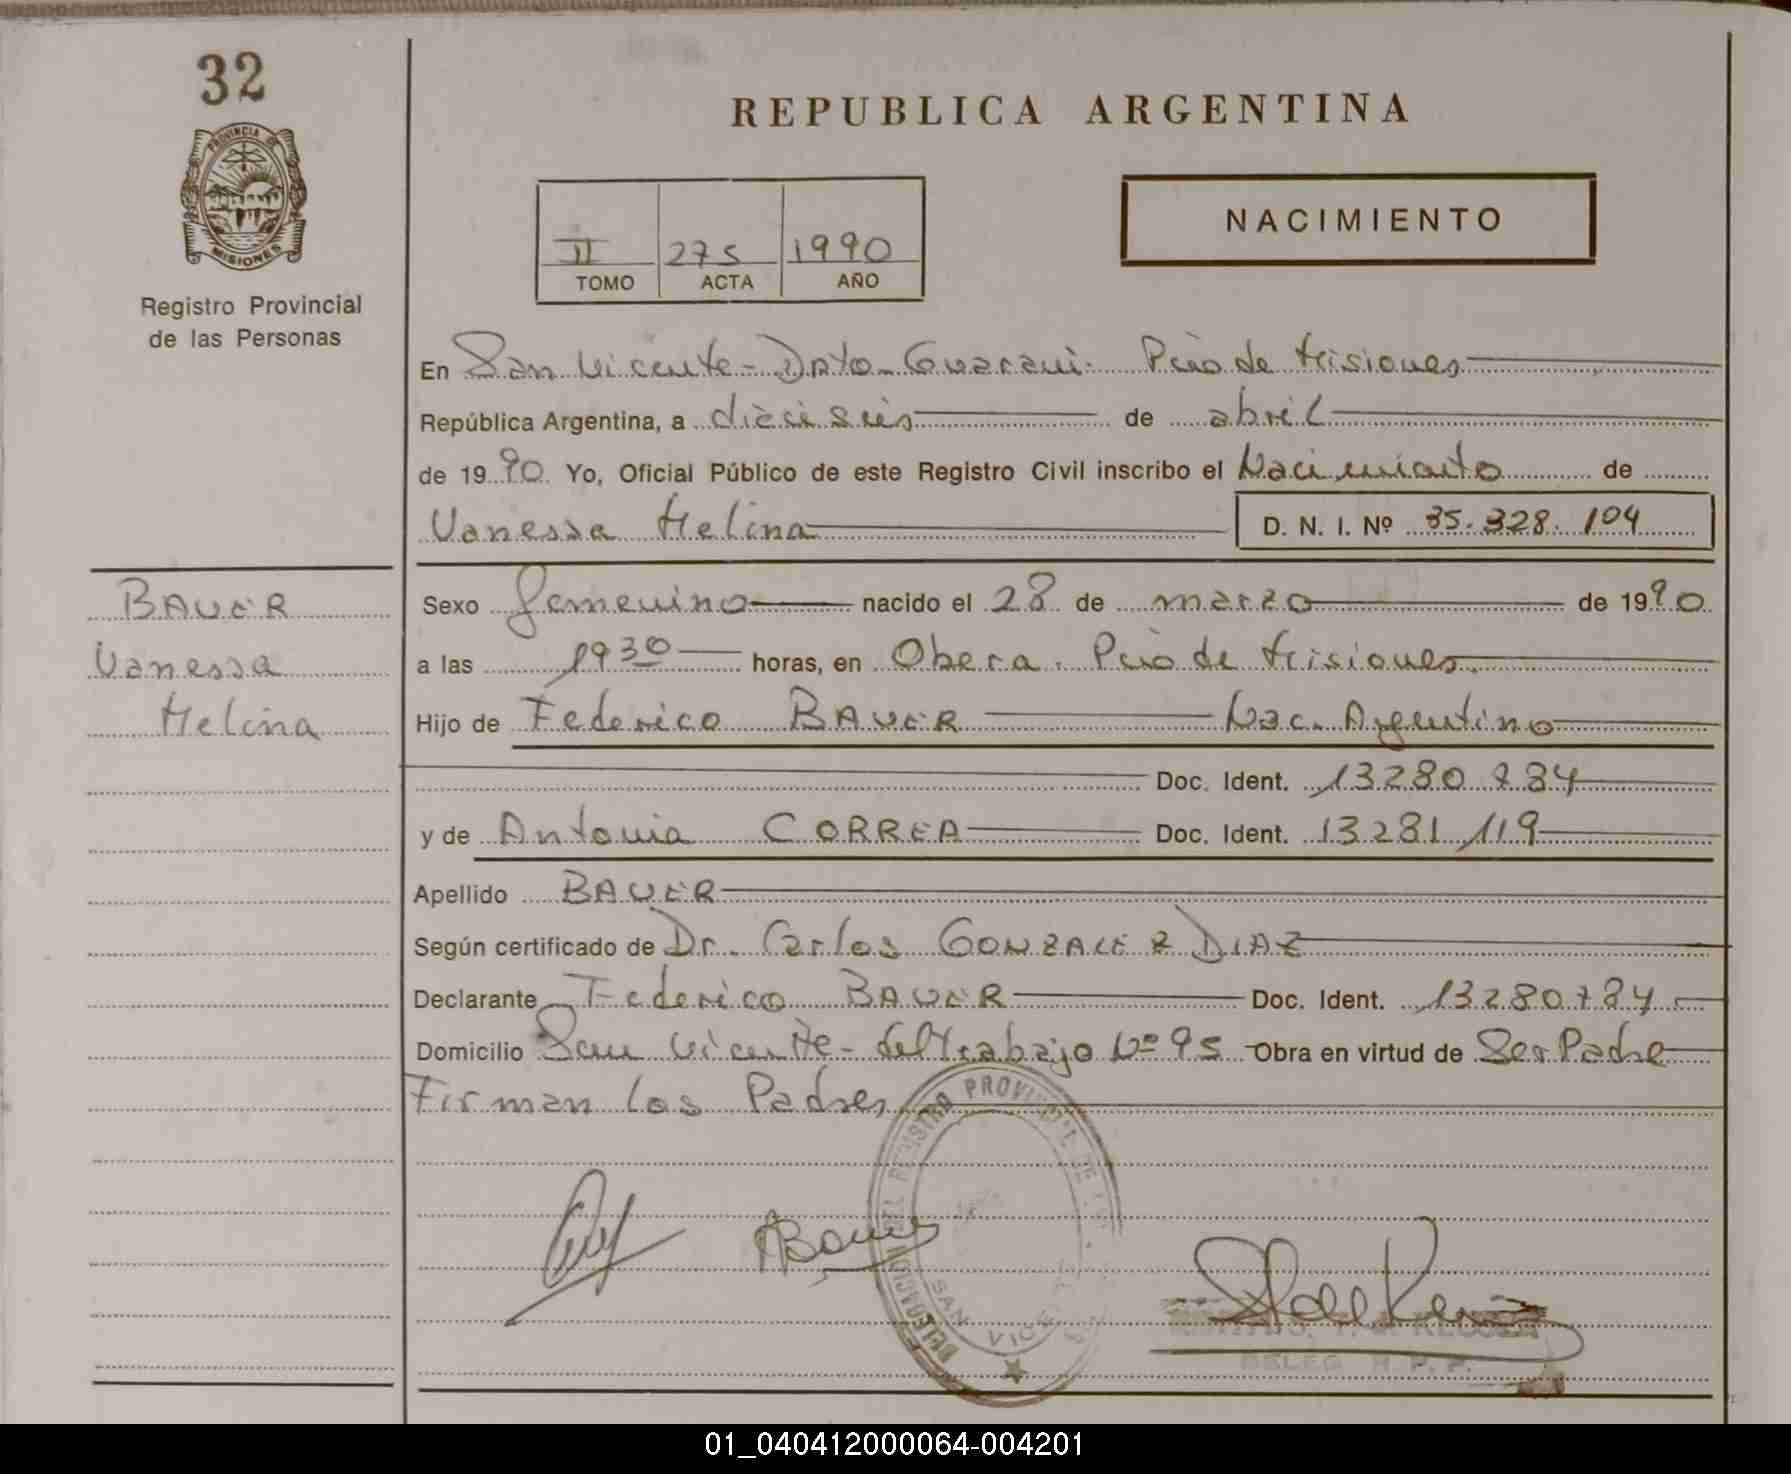 32
PROVINCIA DE
MISIONES
Registro Provincial
de las Personas
REPUBLICA ARGENTINA
II 275 1990
TOMO ACTA AÑO
NACIMIENTO
En San Vicente - Dpto. Guaraní. Pcia de Misiones
República Argentina, a dieciseis de abril
de 1990. Yo, Oficial Público de este Registro Civil inscribo el Nacimiento de
Vanessa Melina D. N. I. Nº 35.328.104
BAUER
Vanessa
Melina
Sexo femenino nacido el 28 de marzo de 1990
a las 19 30 horas, en Obera. Pcia de Misiones
Hijo de Federico BAUER Nac. Argentino
Doc. Ident. 13280784
y de Antonia CORREA Doc. Ident. 13281119
Apellido BAUER
Según certificado de Dr. Carlos GONZALEZ DIAZ
Declarante Federico BAUER Doc. Ident. 13280784
Domicilio San Vicente - del Trabajo Nº 95 Obra en virtud de Ser Padre
Firman los Padres
DELEGACION DEL REGISTRO PROVINCIAL DE
SAN VICENTE
DELEG. R. P. P.
01_040412000064-004201